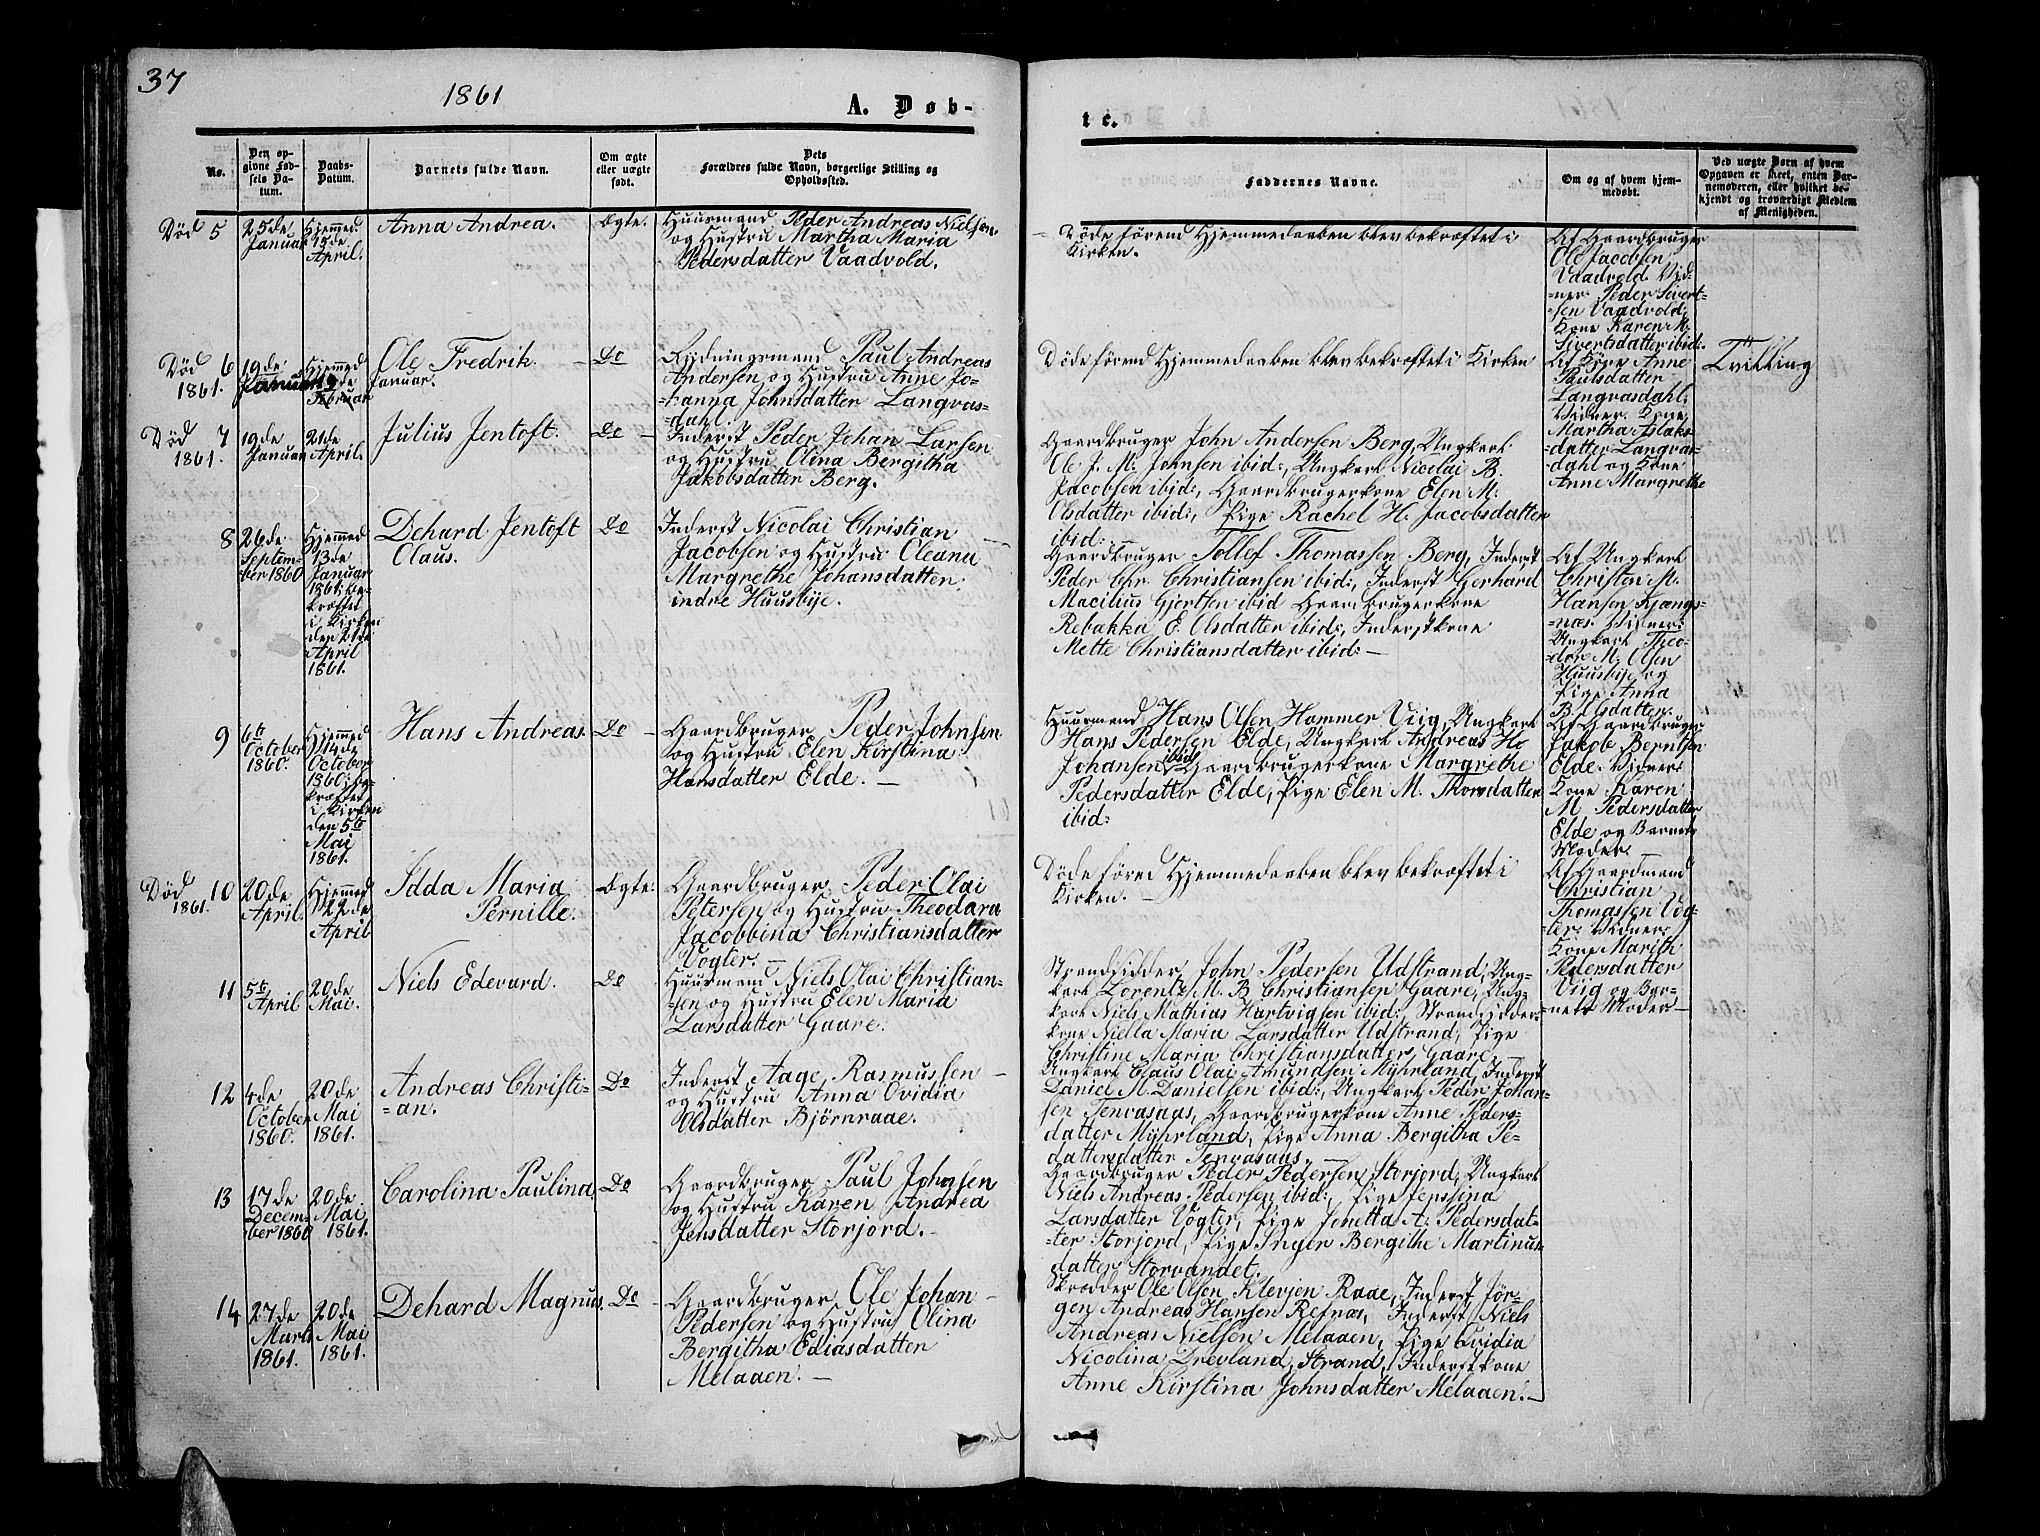 37
1861
A. Døb-
te.
No.
Den op-
givne Fød-
sels Da-
tum.
Daabs-
Datum.
Barnets fulde Navn.
Om ægte
eller uægte
født.
Dets
Forældres fulde Navn, borgerlige Stilling og
Opholdssted.
Faddernes Navne.
Om og af hvem hjem-
medøbt.
Ved uægte Børn af hvem
Opgaven er skeet, enten Bar-
nemoderen, eller hvilket be-
kjendt og troværdigt Medlem
af Menigheden.
Død 5
25de
Januar
Hjemmed.
15de
April.
Anna Andrea.
Ægte.
Huusmand Peder Andreas Nielsen
og Hustru Martha Maria
Pedersdatter Vaadvold.
Døde førend Hjemmedaaben blev bekræftet i
Kirken.
Af Gaardbruger
Ole Jacobsen
Vaadvold. Vid-
=ner Peder Sivert=
=sen Vaadvold,
Kone Karen M.
Sivertsdatter ibid:
Død 6
1861.
19de
Januar
Hjemmed
19de
Januar.
Februar
Ole Fredrik.
Do
Rydningsmand Paul Andreas
Andersen og Hustru Anne Jo-
=hanna Johnsdatter Langvas=
=dahl.
Døde førend Hjemmedaaben blev bekræftet i Kirken
Af Kone Anne
Paulsdatter
Langvasdahl,
Vidner: Kone
Martha Aslaks=
=datter Langvas=
dahl og Kone
Anne Margrethe
Tvilling
Død 7
1861.
19de
Januar
21de
April.
Julius Jentoft.
Do
Inderst Peder Johan Larsen
og Hustru Olina Bergitha
Jakobsdatter Berg.
Gaardbruger John Andersen Berg, Ungkarl
Ole J. M. Johnsen ibid:, Ungkarl Nicolai B.
Jacobsen ibid:, Gaardbrugerkone Elen M.
Olsdatter ibid:, Pige Rachel H. Jacobsdatter
ibid:
8
26de
Septem-
=ber 1860
Hjemmed
13de
Januar
1861; be-
kræftet
i Kirken
den 21de
April
1861.
Dehard Jentoft
Claus.
Do
Inderst Nicolai Christian
Jacobsen og Hustru Oleana
Margrethe Johansdatter
indre Huusbye.
Gaardbruger Tollef Thomassen Berg, Inderst
Peder Chr. Christiansen ibid:, Inderst Gerhard
Macilius Gjertsen ibid Gaardbrugerkone
Rebakka E. Olsdatter ibid:, Inderstkone
Mette Christiansdatter ibid:
Af Ungkarl
Christen M.
Hansen Kjængs-
=næs. Vidner:
Ungkarl Theo-
=dor M. Olsen
Huusbye og
Pige Anna
B. Olsdatter.
9
6te
October
1860.
Hjemmed
14de
October
1860; be-
kræftet
i Kirken
den 5te
Mai
1861.
Hans Andreas.
Do
Gaardbruger Peder Johnsen
og Hustru Elen Kirstina
Hansdatter Elde.
Huusmand Hans Olsen Hammer Viig, Ungkarl
Hans Pedersen Elde, Ungkarl Andreas H.
Johansen ibid Gaardbrugerkone Margrethe
Pedersdatter Elde, Pige Elen M. Thorsdatter
ibid:
Af Gaardbruger
Jakob Berntsen
Elde. Vidner:
Kone Karen
M Pedersdatter
Elde og Barnets
Moder.
Død 10
1861.
20de
April.
Hjemmed
22de
April
Idda Maria
Pernille.
Ægte.
Gaardbruger Peder Olai
Petersen og Hustru Theodora
Jacobbina Christiansdatter
Vogter.
Døde førend Hjemmedaaben blev bekræftet i
Kirken.
Af Gaardmand
Christian
Thomassen Vog-
ter. Vidner
Kone Marith
Pedersdatter
Viig og Bar-
=nets Moder.
11
5te
April
20de
Mai.
Niels Edevard.
Do
Huusmand Niels Olai Christian-
=sen og Hustru Elen Maria
Larsdatter Gaare.
Strandsidder John Pedersen Udstrand, Ung-
karl Lorentz M. B Christiansen Gaare, Ung-
karl Niels Mathias Hartvigsen ibid:, Strandsidder=
kone Niella Maria Larsdatter Udstrand, Pige
Christine Maria Christiansdatter Gaare.
12
4de
October
1860.
20de
Mai
1861.
Andreas Christi-
=an.
Do
Inderst Aage Rasmussen
og Hustru Anna Ovidia
Olsdatter Bjørnraae.
Ungkarl Claus Olai Amundsen Myhrland, Inderst
Daniel M. Danielsen ibid:, Ungkarl Peder Johan-
sen Tenvasaas, Gaardbrugerkone Anne Peders-
datter Myhrland, Pige Anna Bergitha Pe-
dattersdatter Tenvasaas.
13
17de
Decem-
=ber 1860
20de
Mai
1861.
Carolina Paulina.
Do
Gaardbruger Paul Johnsen
og Hustru Karen Andrea
Jensdatter Storjord.
Gaardbruger Peder Pedersen Storjord, Ungkarl
Niels Andreas Pedersen ibid:, Pige Jenssina
Larsdatter Vogter, Pige Jonetta A. Pedersdat-
=ter Storjord, Pige Inger Bergithe Martinus-
datter Storvandet.
14
27de
Marts
1861.
20de
Mai
1861.
Dehard Magnus.
Do
Gaardbruger Ole Johan
Pedersen og Hustru Olina
Bergitha Ediasdatter
Melaaen.
Skrædder Ole Olsen Klevjen Raae, Inderst Jør-
gen Andreas Hansen Refnæs, Inderst Niels
Andreas Nielsen Melaaen, Pige Ovidia
Nicolina Drevland Strand, Inderstkone
Anne Kirstina Johnsdatter Melaaen.